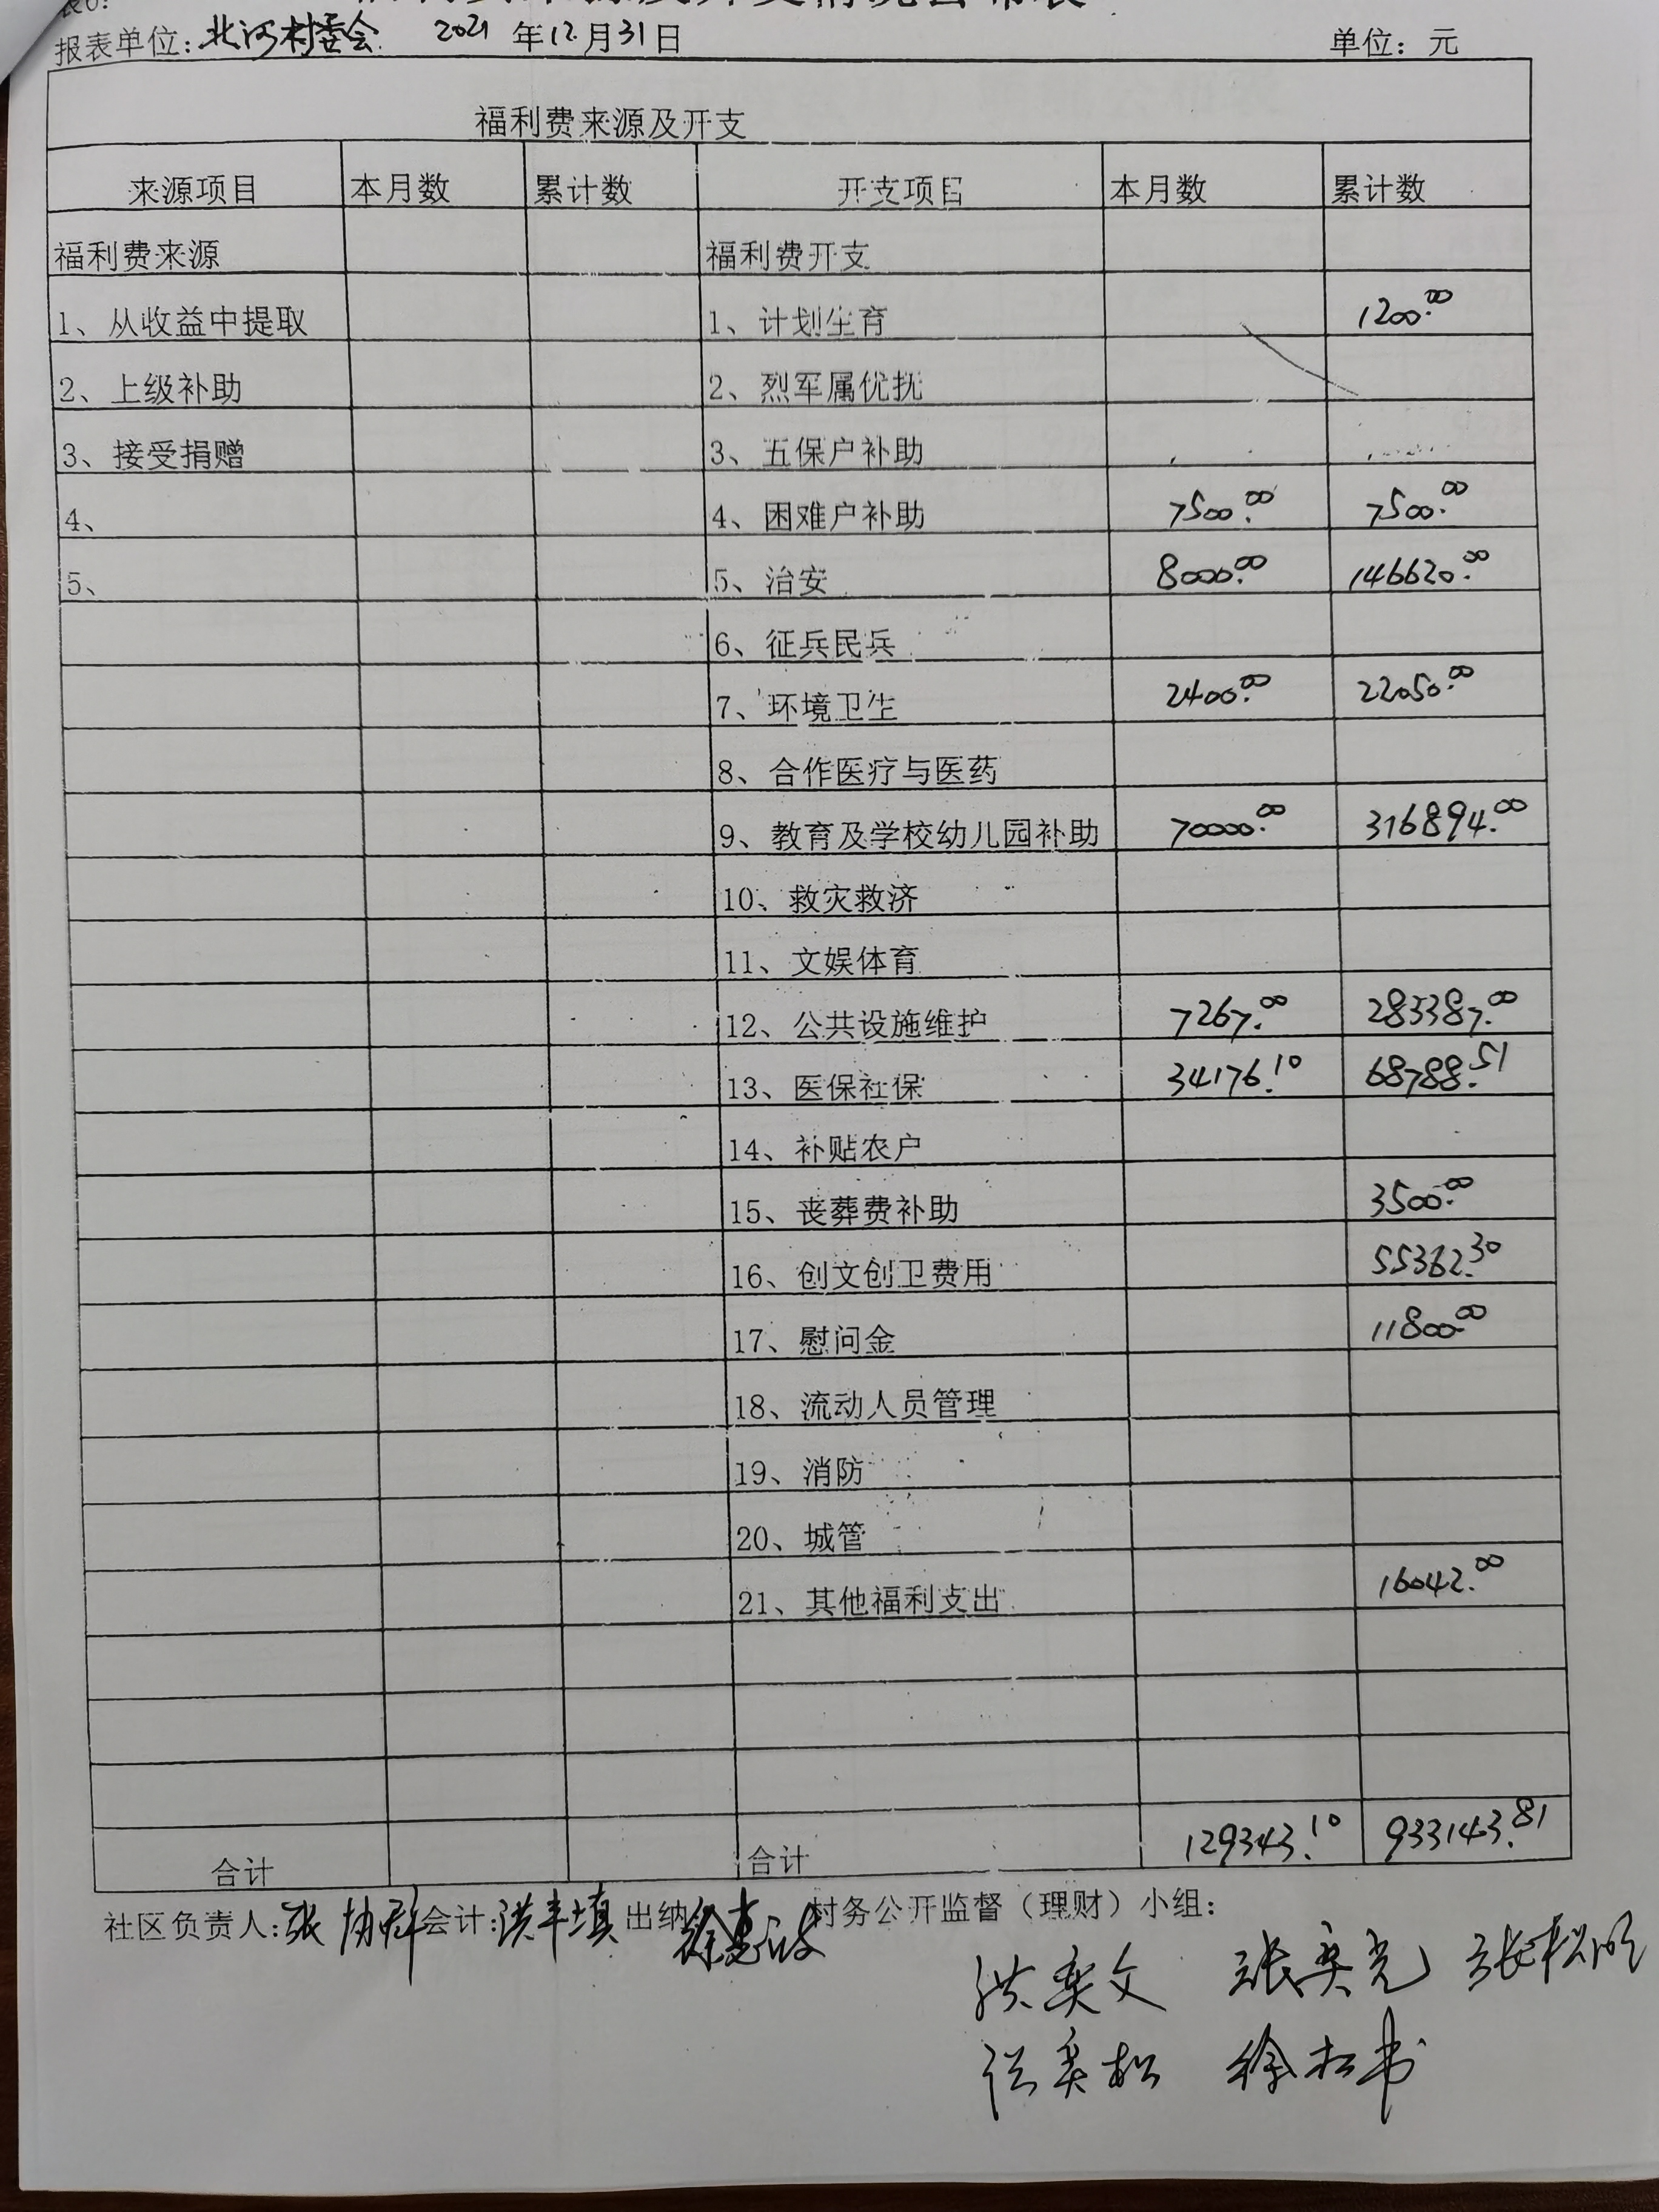 表6:
报表单位:北河村委会 2021年12月31日 单位：元
福利费来源及开支
来源项目 本月数 累计数 开支项目 本月数 累计数
福利费来源 福利费开支
1、从收益中提取 1、计划生育 1200.00
2、上级补助 2、烈军属优抚
3、接受捐赠 3、五保户补助
4、 4、困难户补助 7500.00 7500.00
5、 5、治安 8000.00 146620.00
6、征兵民兵
7、环境卫生 2400.00 22050.00
8、合作医疗与医药
9、教育及学校幼儿园补助 70000.00 316894.00
10、救灾救济
11、文娱体育
12、公共设施维护 7267.00 283387.00
13、医保社保 34176.10 68788.51
14、补贴农户
15、丧葬费补助 3500.00
16、创文创卫费用 55362.30
17、慰问金 11800.00
18、流动人员管理
19、消防
20、城管
21、其他福利支出 16042.00
合计 合计 129343.10 933143.81
社区负责人:张 会计:洪丰填 出纳 徐惠 村务公开监督（理财）小组:
洪奕文 张奕光 张松
奕松 徐松书